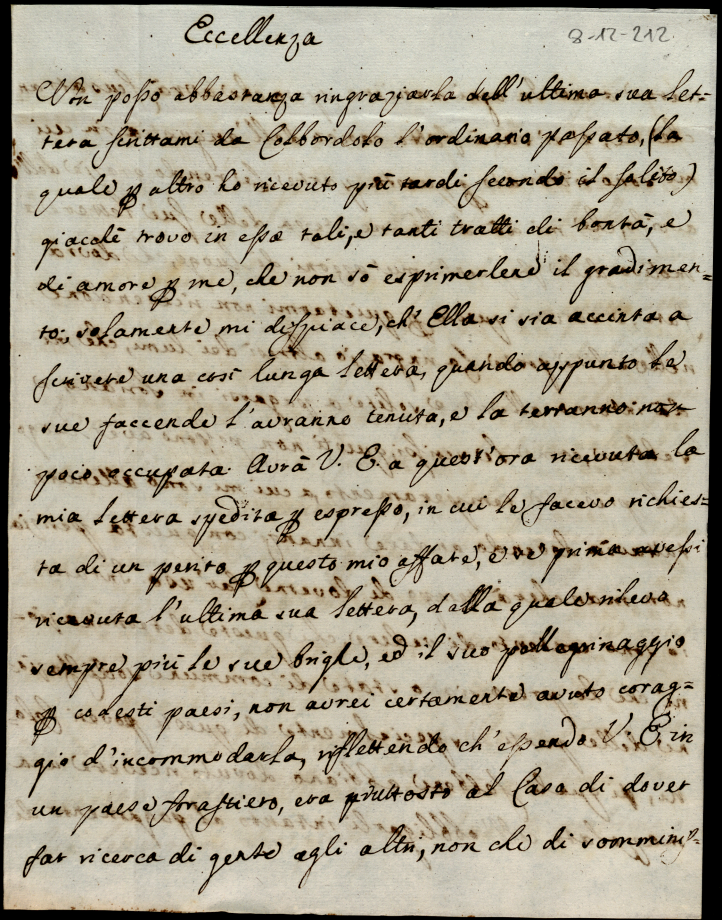 Eccellenza
8-12-212
Non posso abbastanza ringraziarla dell'ultima sua let=
tera scrittami da Colbordolo l'ordinario passato, (la
quale ꝑ altro ho ricevuto più tardi secondo il solito)
giacchè trovo in essa tali, e tanti tratti di bontà, e
di amore ꝑ me, che non sò esprimerlene il gradimen=
to; solamente mi dispiace, ch'Ella si sia accinta a
scrivere una così lunga lettera, quando appunto le
sue faccende l'avranno tenuta, e la terranno non
poco occupata. Avrà V. E. a quest'ora ricevuta la
mia lettera spedita ꝑ espresso, in cui le facevo richies=
ta di un perito ꝑ questo mio affare, e se prima avessi
ricevuta l'ultima sua lettera, dalla quale rilevo
sempre più le sue brighe, ed il suo pellegrinaggio
ꝑ codesti paesi, non avrei certamente avuto corag=
gio d'incommodarla, riflettendo ch'essendo V. E. in
un paese forastiero, era piuttosto al Caso di dover
far ricerca di gente agli altri, non che di somminis=